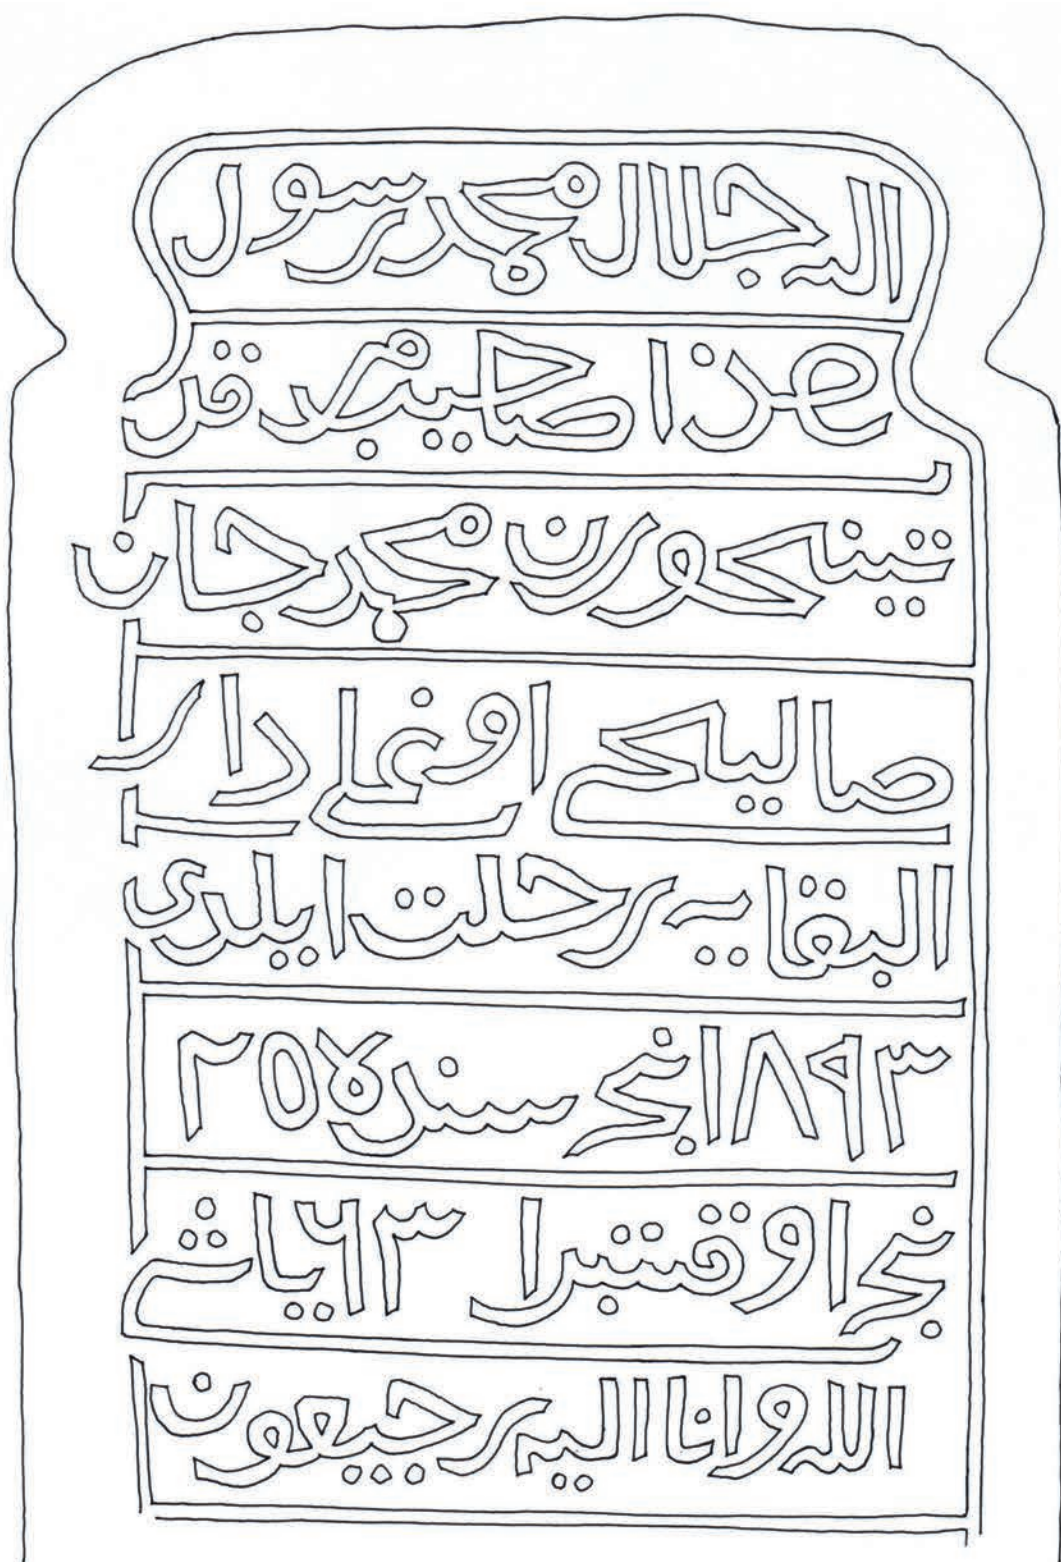 اله جلال محمد رسول
هذا صاحيب مرقد
تينكورن محمد جان
صاليكى اوغلى دار
البقايه رحلت ايلدى
١٨٩٣نجى سنده ٢٥
نجى اوقتبرا ٦٣ ياشى
الله وانا اليه رجيعون